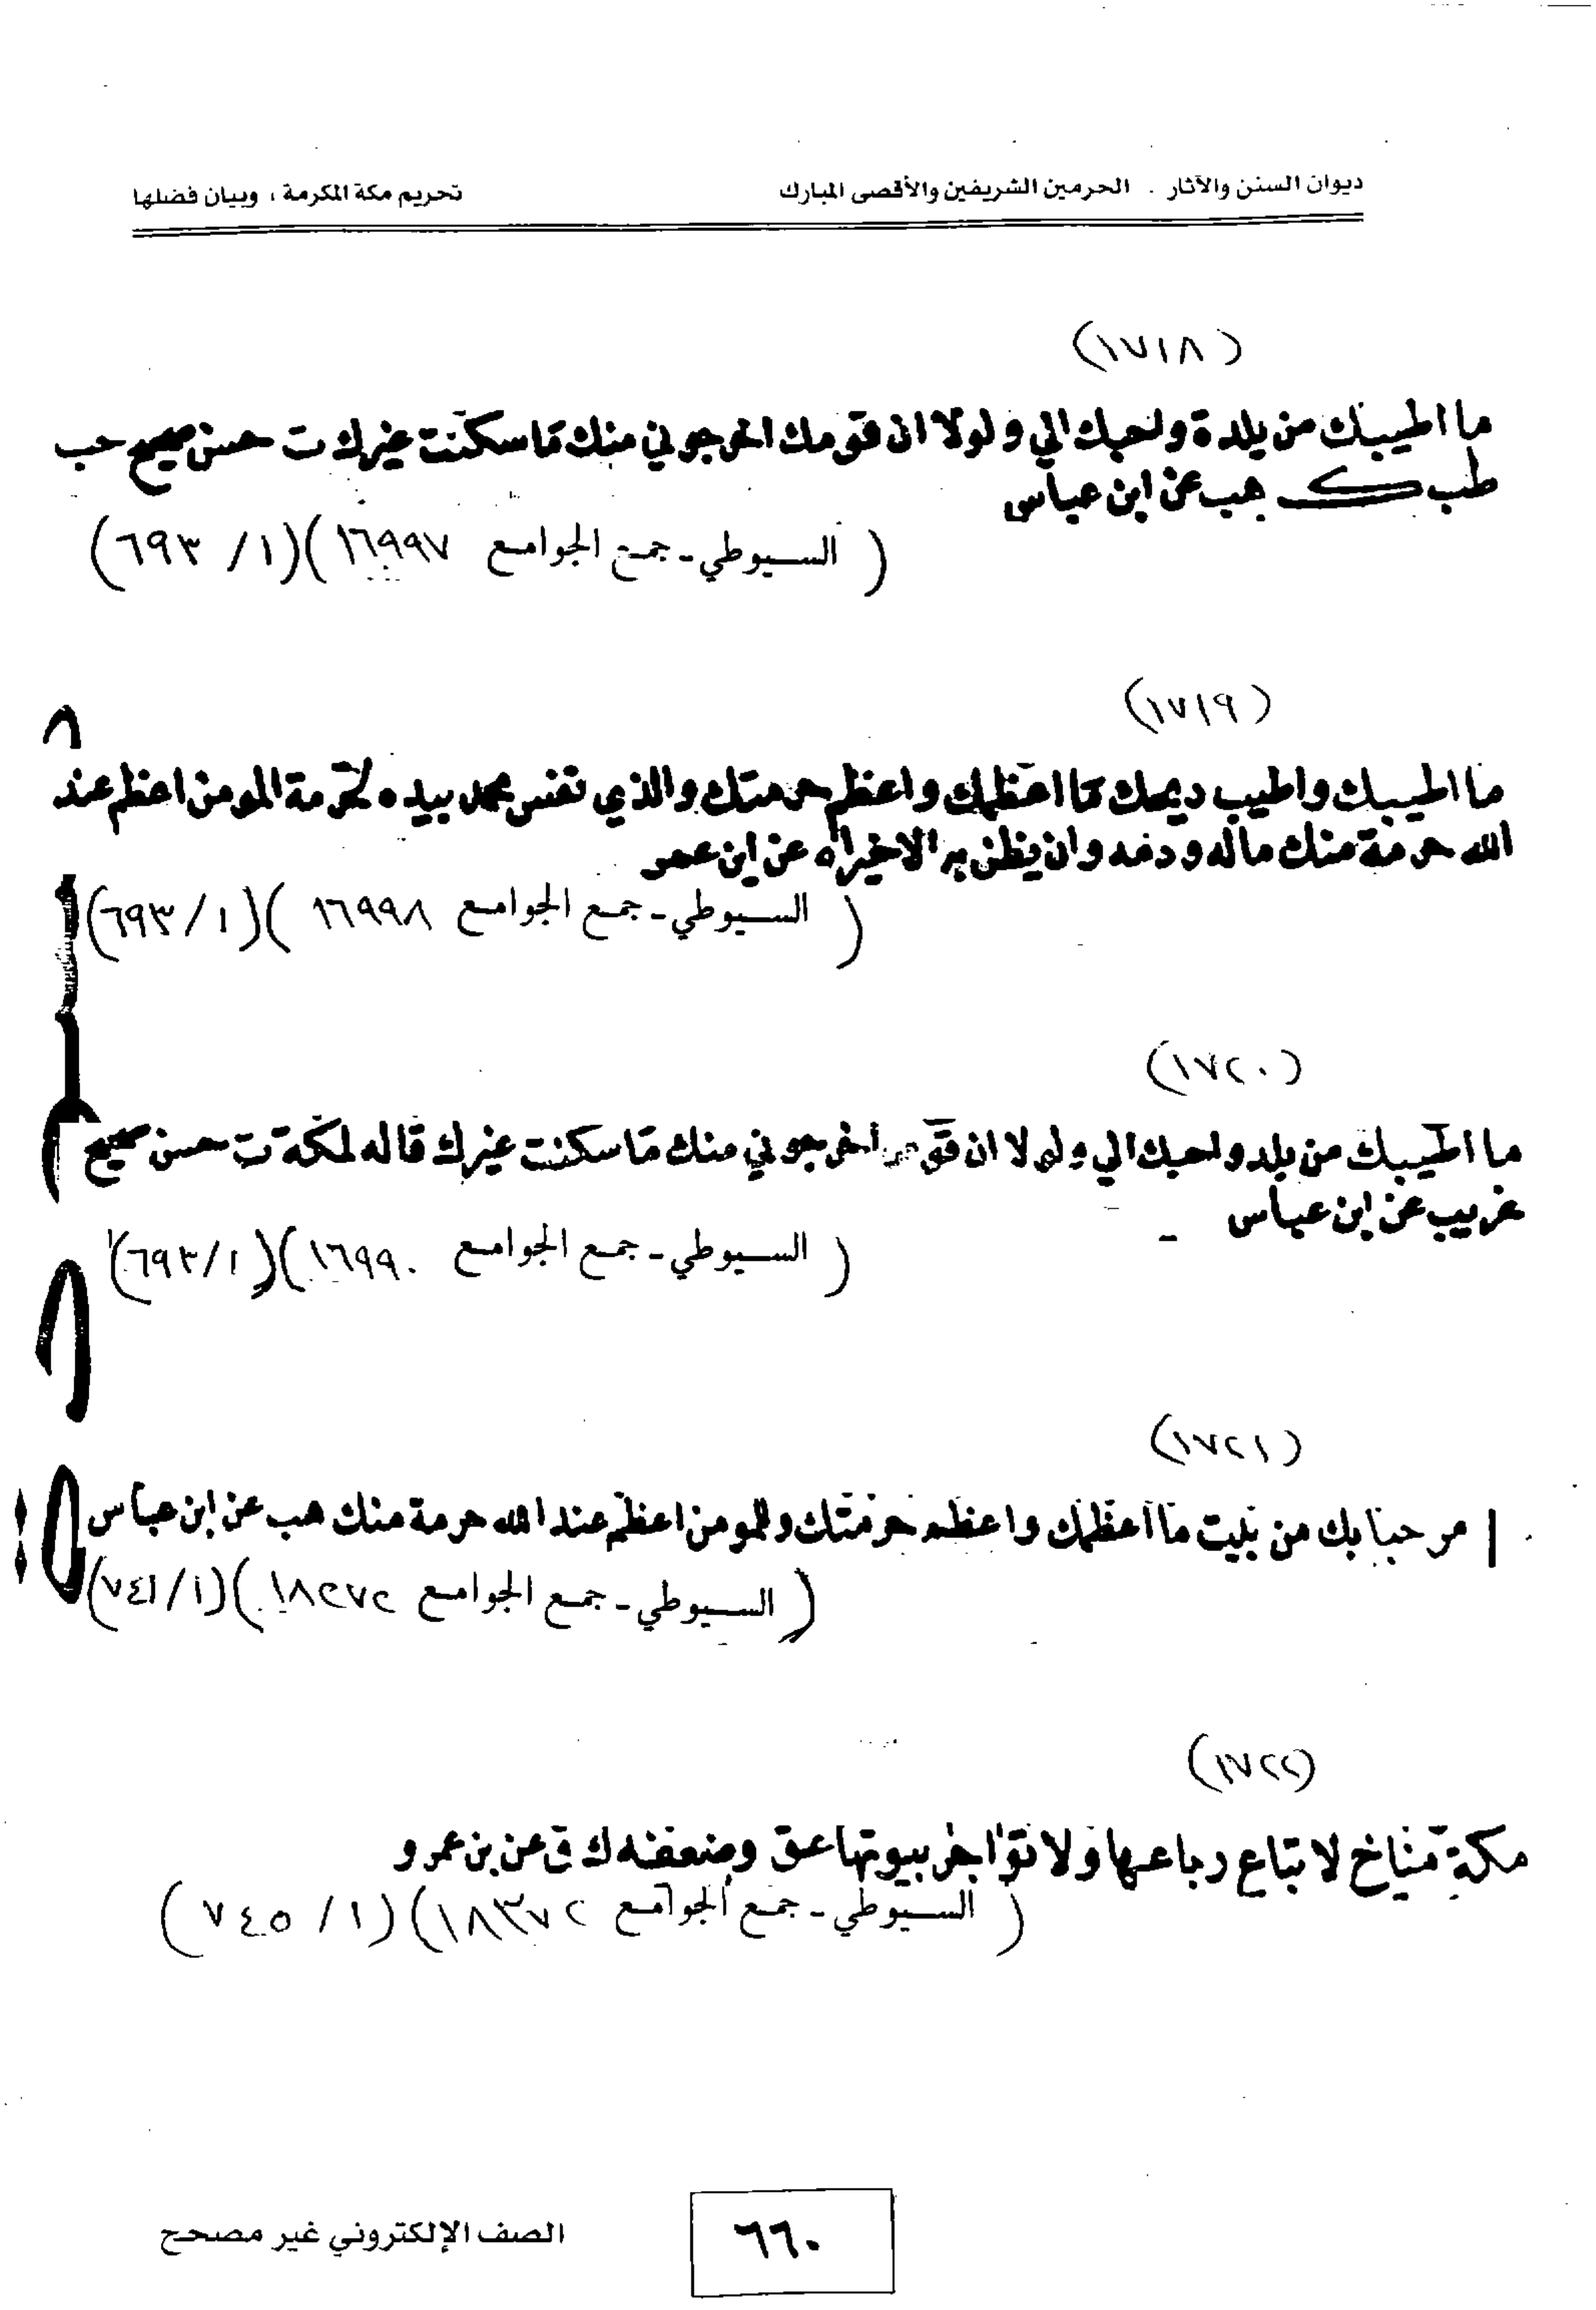 ديوان السنن والآثار . الحرمين الشريفين والأقصى المبارك
تحريم مكة المكرمة ، وبيان فضلها
(١٧١٨)
ما اطيبك من بلدة واحبك الي ولولا ان قومك اخرجوني منك ما سكنت غيرك ت حسن صحيح حب
طب ك هب عن ابن عباس
( السيوطي - جمع الجوامع ١٦٩٩٧)(١/ ٦٩٣)
(١٧١٩)
ما اطيبك واطيب ريحك ما اعظمك واعظم حرمتك والذي نفس محمد بيده لحرمة المومن اعظم عند
الله حرمة منك ماله ودمه وان يظن به الا خيرا ه عن ابن عمر
( السيوطي - جمع الجوامع ١٦٩٩٨ )(١/ ٦٩٣)
(١٧٢٠)
ما اطيبك من بلد واحبك الي ولولا ان قومي أخرجوني منك ما سكنت غيرك قاله لمكة ت حسن صحيح
غريب عن ابن عباس
( السيوطي - جمع الجوامع ١٦٩٩٠)(١/ ٦٩٣)
(١٧٢١)
مرحبا بك من بيت ما أعظمك واعظم حرمتك وللمومن اعظم عند الله حرمة منك هب عن ابن عباس
( السيوطي - جمع الجوامع ١٨٢٧٢)(١/ ٧٤١)
(١٧٢٢)
مكة مناخ لا تباع رباعها ولا تؤاجر بيوتها عق وضعفه ك ق عن بن عمرو
( السيوطي - جمع الجوامع ١٨٣٧٢)(١/ ٧٤٥)
٦٦٠
الصف الإلكتروني غير مصحح